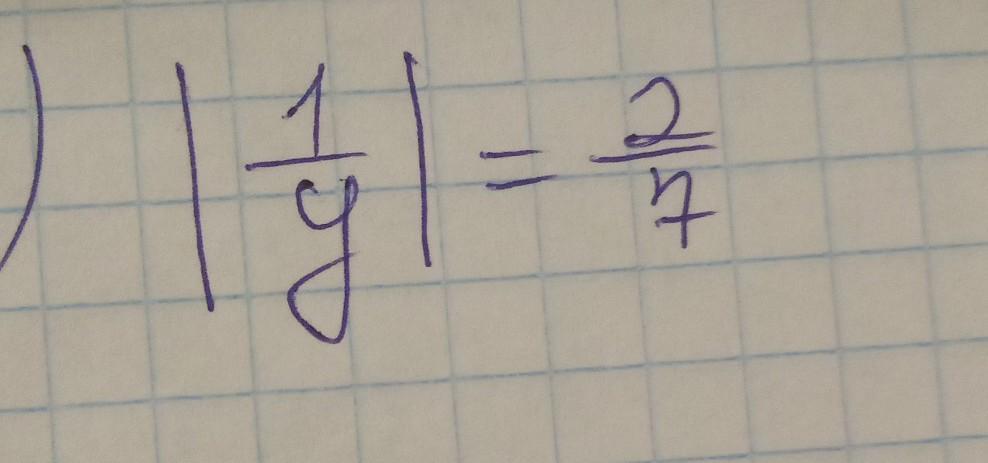 ) |1/y| = 2/7